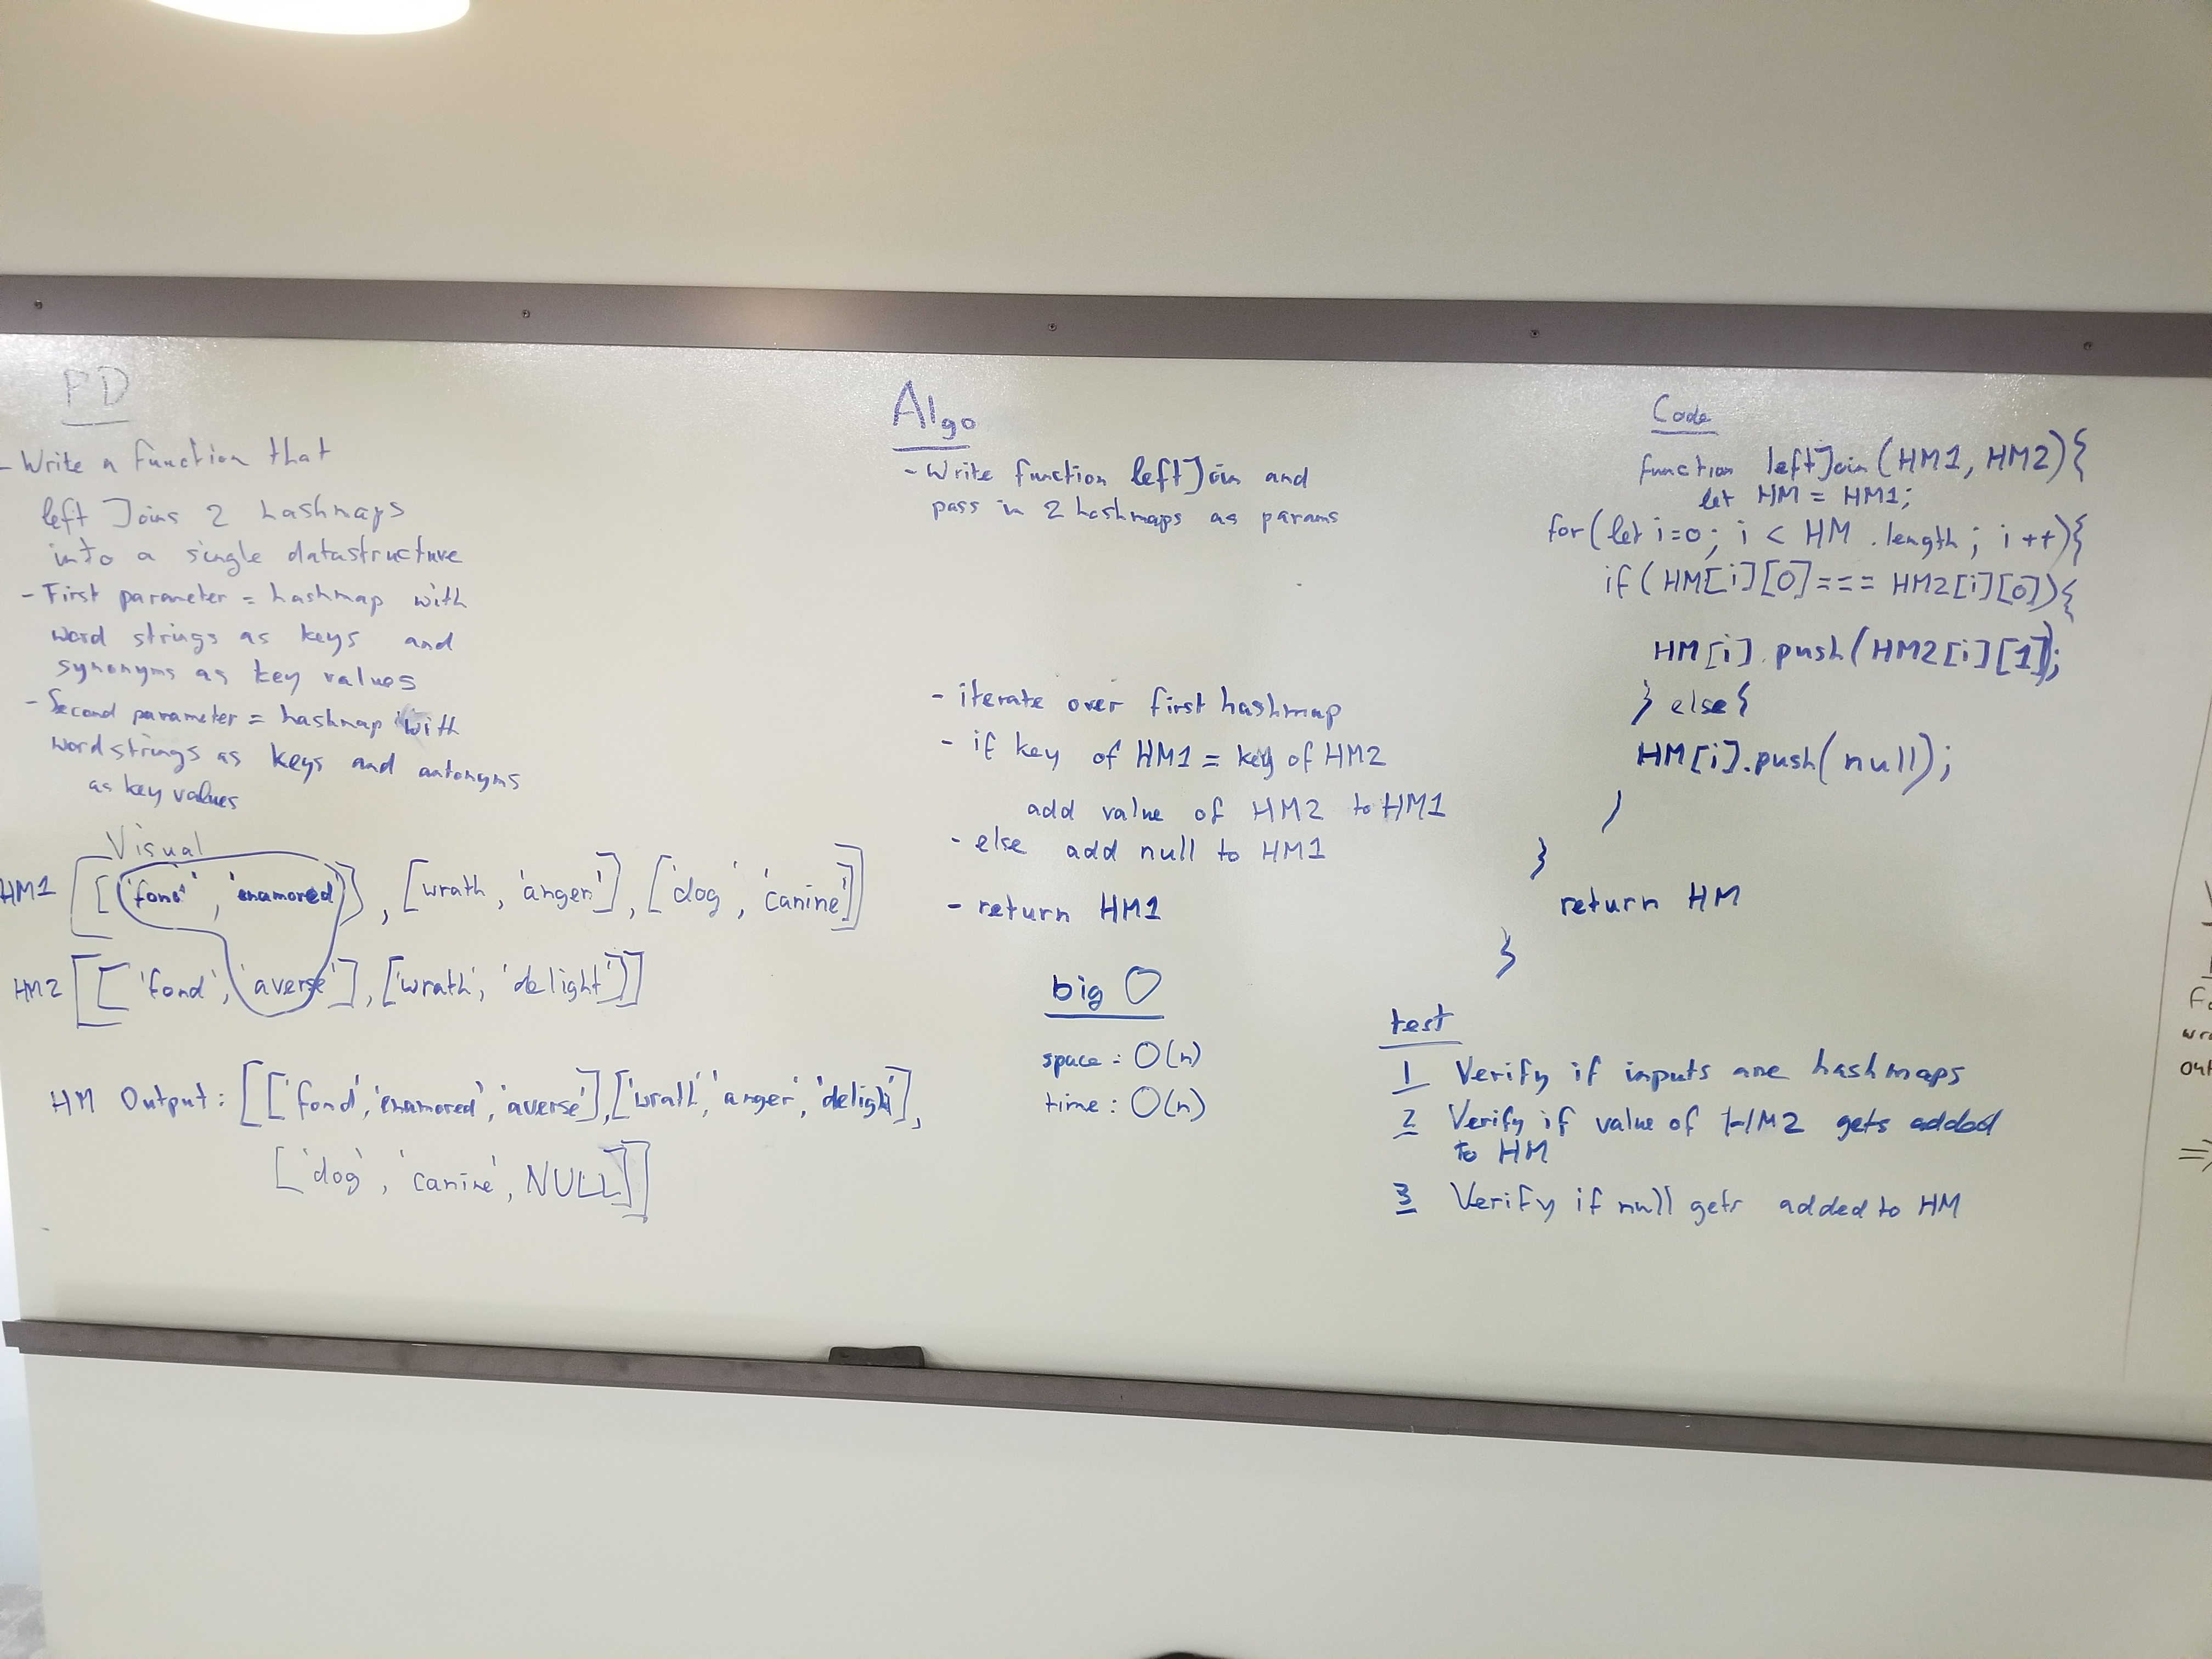 PD
- Write a function that
left Joins 2 hashmaps
into a single datastructure
- First parameter = hashmap with
word strings as keys and
synonyms as key values
- Second parameter = hashmap with
word strings as keys and antonyms
as key values
Visual
HM1 [['fond', 'enamored'], [wrath, 'anger'], ['dog', 'canine']]
HM2 [['fond', 'averse'], ['wrath', 'delight']]
HM Output: [['fond', 'enamored', 'averse'], ['wrath', 'anger', 'delight'],
['dog', 'canine', NULL]]
Algo
- Write function leftJoin and
pass in 2 hashmaps as params
- iterate over first hashmap
- if key of HM1 = key of HM2
add value of HM2 to HM1
- else add null to HM1
- return HM1
big O
space: O(n)
time: O(n)
Code
function leftJoin(HM1, HM2){
let HM = HM1;
for(let i=0; i < HM.length; i++){
if(HM[i][0] === HM2[i][0]){
HM[i].push(HM2[i][1]);
} else{
HM[i].push(null);
}
}
return HM
}
test
1 Verify if inputs are hashmaps
2 Verify if value of HM2 gets added
to HM
3 Verify if null gets added to HM